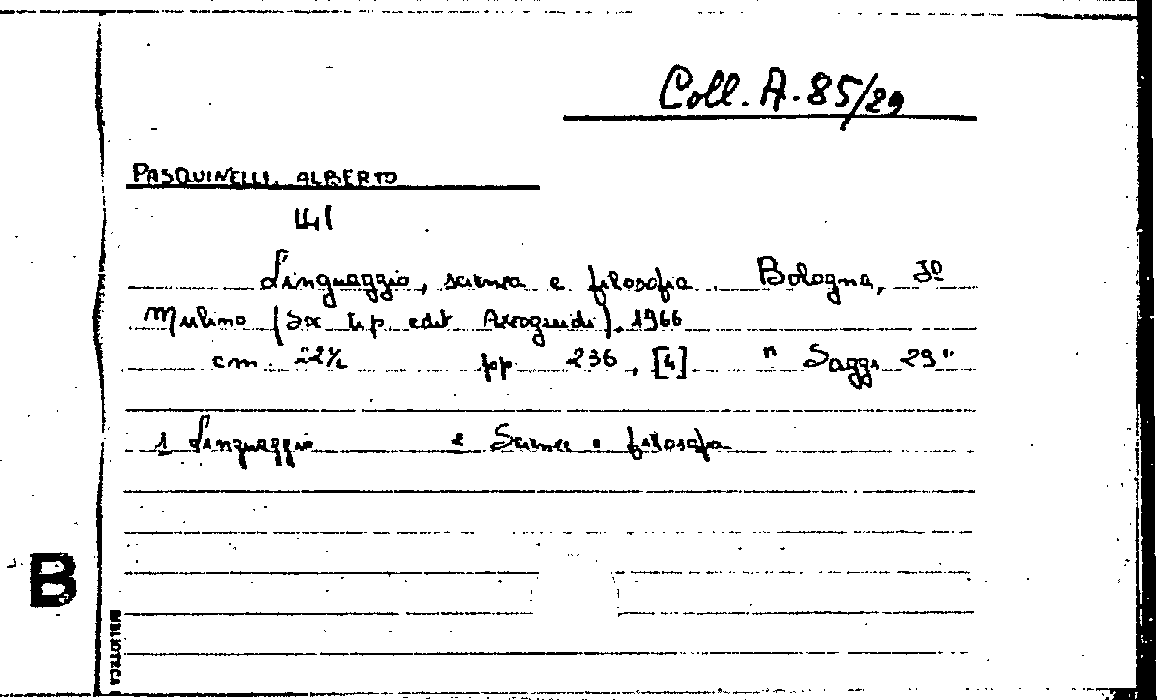 Coll. A. 85/29
PASQUINELLI, ALBERTO
Linguaggio, scienza e filosofia. Bologna, Il
Mulino (tip. edit. 1966
cm. pp. 236, [4] "Saggi 29"
1 Linguaggio 2 Scienza e filosofia
B
BIBLIOTECA